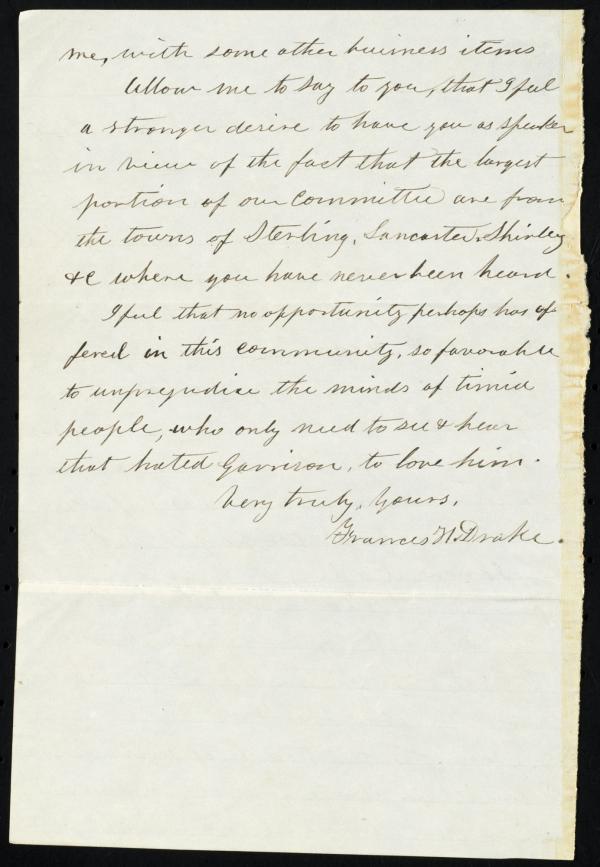 me, with some other buisness items
Allow me to say to you, that I feel
a stronger desire to have you as speaker
in view of the fact that the largest
portion of our Committee are from
the towns of Sterling, Lancaster, Shirley
&c where you have never been heard.
I feel that no opportunity perhaps has of
fered in this community, so favorable
to unprejudice the minds of timid
people, who only need to see & hear
that hated Garrison, to love him.
Very truly, Yours,
Frances H. Drake.